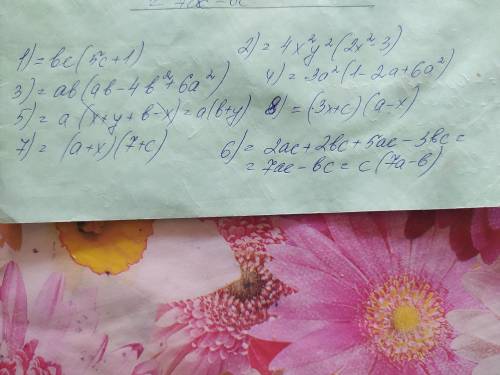 = 7ac - bc
1) = bc(5c+1)
2) = 4x²y²(2x²-3)
3) = ab(ab-4b²+6a²)
4) = 3a²(1-2a+6a²)
5) = a(x+y+b-x)=a(b+y)
8) = (3x+c)(a-x)
7) = (a+x)(7+c)
6) = 2ac+2bc+5ac-3bc=
= 7ac-bc=c(7a-b)